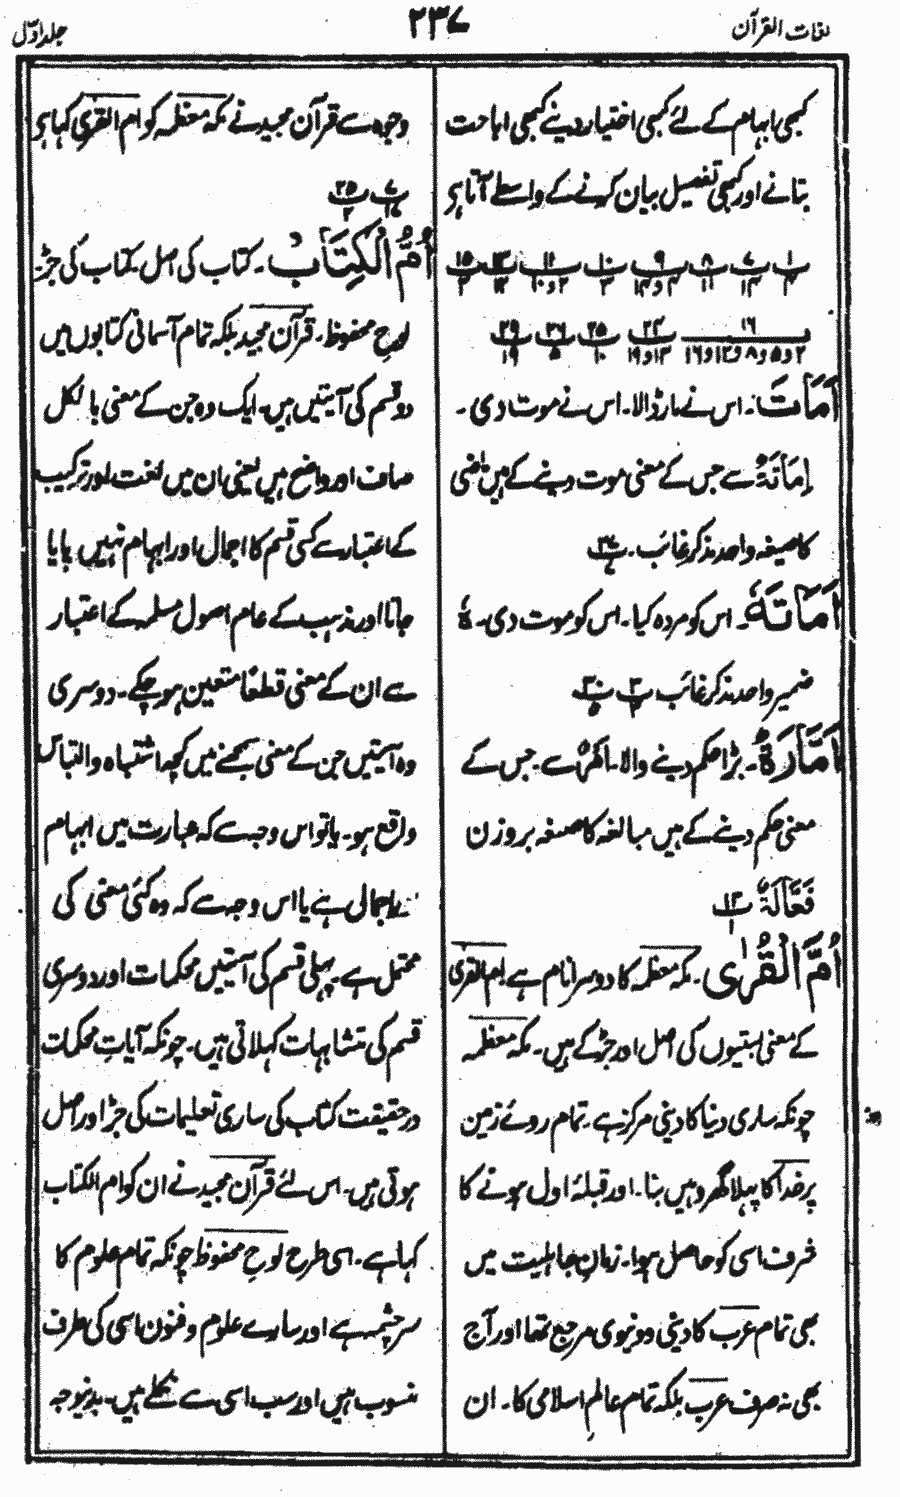 لغات القرآن
۲۳۷
جلد اوّل
کبھی ابہام کے لئے کبھی اختیار دینے کبھی اباحت
بتانے اور کبھی تفصیل بیان کرنے کے واسطے آتا ہے
اَمَاتَ۔ اس نے مار ڈالا۔ اس نے موت دی۔
اِمَاتَةٌ سے جس کے معنی موت دینے کے ہیں ماضی
کا صیغہ واحد مذکر غائب۔
اَمَاتَهٗ۔ اس کو مردہ کیا۔ اس کو موت دی۔ هٗ
ضمیر واحد مذکر غائب
اَمَّارَةٌ۔ بڑا حکم دینے والا۔ اَمْرٌ سے۔ جس کے
معنی حکم دینے کے ہیں مبالغہ کا صیغہ بروزن
فَعَّالَةٌ
اُمَّ الْقُرٰى۔ مکہ معظمہ کا دوسرا نام ہے ام القریٰ
کے معنی بستیوں کی اصل اور جڑ کے ہیں۔ مکہ معظمہ
چونکہ ساری دنیا کا دینی مرکز ہے۔ تمام روئے زمین
پر خدا کا پہلا گھر وہیں بنا۔ اور قبلۂ اول ہونے کا
شرف اسی کو حاصل ہوا۔ زمانِ جاہلیت میں
بھی تمام عرب کا دینی و دنیوی مرجع تھا اور آج
بھی نہ صرف عرب بلکہ تمام عالمِ اسلامی کا۔ ان
وجوہ سے قرآن مجید نے مکہ معظمہ کو ام القریٰ کہا ہے
اُمُّ الْكِتَابِ۔ کتاب کی اصل۔ کتاب کی جڑ۔
لوحِ محفوظ۔ قرآن مجید بلکہ تمام آسمانی کتابوں میں
دو قسم کی آیتیں ہیں۔ ایک وہ جن کے معنی بالکل
صاف اور واضح ہیں یعنی ان میں لغت اور ترکیب
کے اعتبار سے کسی قسم کا اجمال اور ابہام نہیں پایا
جاتا اور مذہب کے عام اصول مسلمہ کے اعتبار
سے ان کے معنی قطعًا متعین ہو چکے۔ دوسری
وہ آیتیں جن کے معنی سمجھنے میں کچھ اشتباہ والتباس
واقع ہو۔ یا تو اس وجہ سے کہ عبارت میں ابہام
اجمال ہے یا اس وجہ سے کہ وہ کئی معنی کی
محتمل ہے۔ پہلی قسم کی آیتیں محکمات اور دوسری
قسم کی متشابہات کہلاتی ہیں۔ چونکہ آیاتِ محکمات
درحقیقت کتاب کی ساری تعلیمات کی جڑ اور اصل
ہوتی ہیں۔ اس لئے قرآن مجید نے ان کو ام الکتاب
کہا ہے۔ اسی طرح لوحِ محفوظ چونکہ تمام علوم کا
سرچشمہ ہے اور سارے علوم و فنون اسی کی طرف
منسوب ہیں اور سب اسی سے نکلے ہیں۔ بدینوجہ